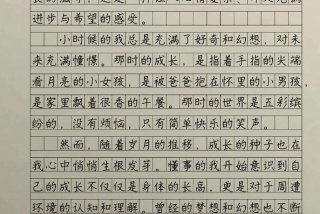 进步与希望的感受。
小时候的我总是充满了好奇和幻想,对未
来充满憧憬。那时的成长,是指着手指的尖端
看月亮的小女孩,是被爸爸抱在怀里的小男孩,
是家里飘着很香的午餐。那时的世界是五彩缤
纷的,没有烦恼,只有简单快乐的笑声。
然而,随着岁月的推移,成长的种子也在
我心中悄悄生根发芽。懂事的我开始意识到自
己的成长不仅仅是身体的长高,更是对于周遭
环境的认知和理解。曾经的梦想和幻想也不断